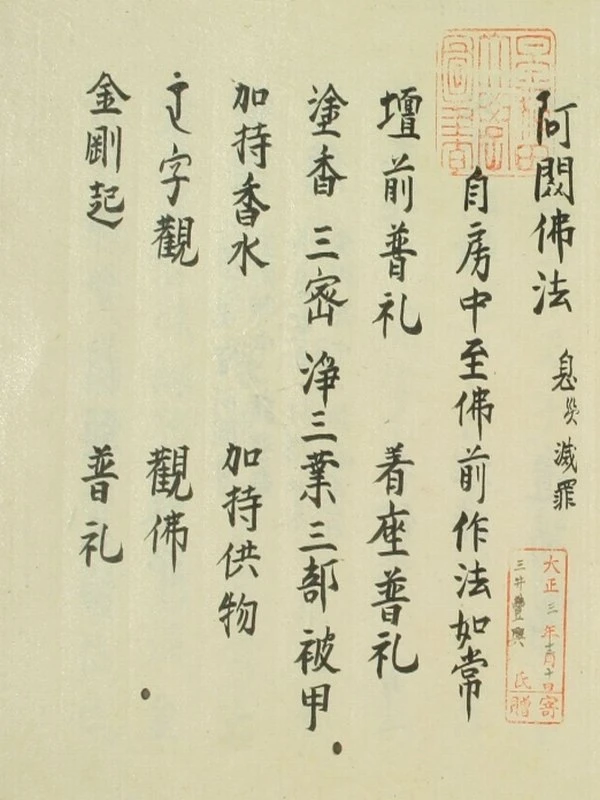 阿閦佛法 息災滅罪
自房中至佛前作法如常
壇前普礼 着座普礼
塗香 三密 淨三業三部 被甲
加持香水 加持供物
字觀 觀佛
金剛起 普礼
大正三年 月十日寄
三井豐興氏贈